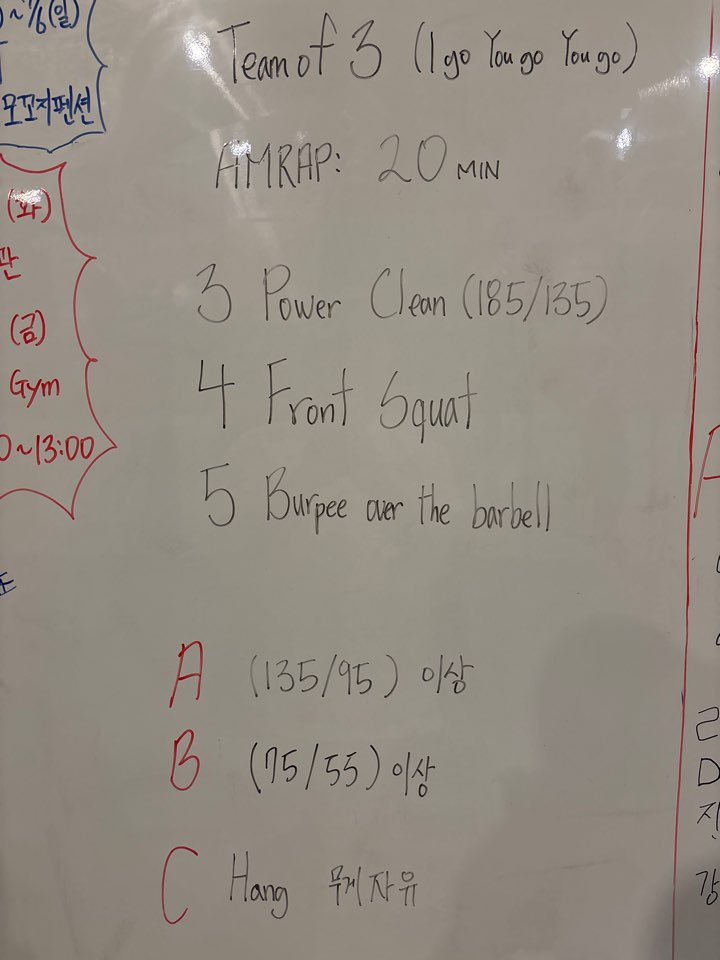 ~7/6(일)
모꼬지펜션
(화)
관
(금)
Gym
0~13:00
Team of 3 (I go You go You go)
AMRAP: 20 MIN
3 Power Clean (185/135)
4 Front Squat
5 Burpee over the barbell
A (135/95) 이상
B (75/55) 이상
C Hang 무게자유